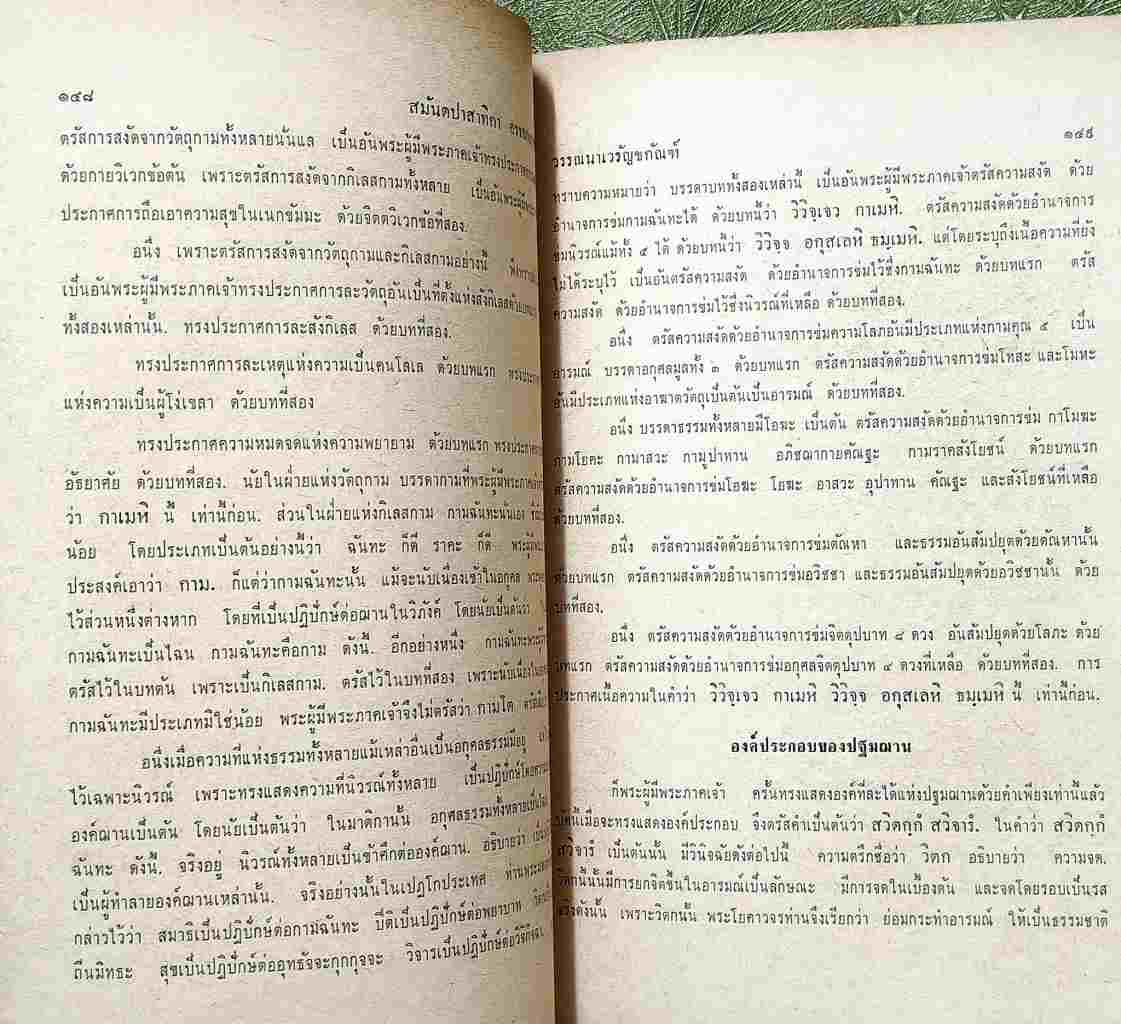 ๑๔๘
สมันตปาสาทิกา
ตรัสการสงัดจากวัตถุกามทั้งหลายนั่นแล เป็นอันพระผู้มีพระภาคเจ้าทรงประกาศ
ด้วยกายวิเวกข้อต้น เพราะตรัสการสงัดจากกิเลสกามทั้งหลาย เป็นอันพระผู้มีพระ
ประกาศการถือเอาความสุขในเนกขัมมะ ด้วยจิตตวิเวกข้อที่สอง.
อนึ่ง เพราะตรัสการสงัดจากวัตถุกามและกิเลสกามอย่างนี้
เป็นอันพระผู้มีพระภาคเจ้าทรงประกาศการละวัตถุอันเป็นที่ตั้งแห่งสังกิเลสด้วยบท
ทั้งสองเหล่านั้น. ทรงประกาศการละสังกิเลส ด้วยบทที่สอง.
ทรงประกาศการละเหตุแห่งความเป็นคนโลเล ด้วยบทแรก ทรงประกาศ
แห่งความเป็นผู้โง่เขลา ด้วยบทที่สอง
ทรงประกาศความหมดจดแห่งความพยายาม ด้วยบทแรก ทรงประกาศ
อัธยาศัย ด้วยบทที่สอง. นัยในฝ่ายแห่งวัตถุกาม บรรดากามที่พระผู้มีพระภาคเจ้า
ว่า กาเมหิ นี้ เท่านี้ก่อน. ส่วนในฝ่ายแห่งกิเลสกาม กามฉันทะนั่นเอง
น้อย โดยประเภทเป็นต้นอย่างนี้ว่า ฉันทะ ก็ดี ราคะ ก็ดี
ประสงค์เอาว่า กาม. ก็แต่ว่ากามฉันทะนั้น แม้จะนับเนื่องเข้าในอกุศล
ไว้ส่วนหนึ่งต่างหาก โดยที่เป็นปฏิปักษ์ต่อฌานในวิภังค์ โดยนัยเป็นต้นว่า
กามฉันทะเป็นไฉน กามฉันทะคือกาม ดังนี้. อีกอย่างหนึ่ง กามฉันทะ
ตรัสไว้ในบทต้น เพราะเป็นกิเลสกาม. ตรัสไว้ในบทที่สอง เพราะนับเนื่องใน
กามฉันทะมีประเภทมิใช่น้อย พระผู้มีพระภาคเจ้าจึงไม่ตรัสว่า กามโต
อนึ่งเมื่อความที่แห่งธรรมทั้งหลายแม้เหล่าอื่นเป็นอกุศลธรรมมีอยู่
ไว้เฉพาะนิวรณ์ เพราะทรงแสดงความที่นิวรณ์ทั้งหลาย เป็นปฏิปักษ์
องค์ฌานเป็นต้น โดยนัยเป็นต้นว่า ในมาติกานั้น อกุศลธรรมทั้งหลายเป็นไฉน
ฉันทะ ดังนี้. จริงอยู่ นิวรณ์ทั้งหลายเป็นข้าศึกต่อองค์ฌาน. อธิบายว่า
เป็นผู้ทำลายองค์ฌานเหล่านั้น. จริงอย่างนั้นในเปฏโกประเทศ
กล่าวไว้ว่า สมาธิเป็นปฏิปักษ์ต่อกามฉันทะ ปีติเป็นปฏิปักษ์ต่อพยาบาท
ถีนมิทธะ สุขเป็นปฏิปักษ์ต่ออุทธัจจะกุกกุจจะ วิจารเป็นปฏิปักษ์ต่อวิจิกิจฉา
วรรณนาเวรัญชกัณฑ์
๑๔๙
ทราบความหมายว่า บรรดาบททั้งสองเหล่านี้ เป็นอันพระผู้มีพระภาคเจ้าตรัสความสงัด ด้วย
อำนาจการข่มกามฉันทะได้ ด้วยบทนี้ว่า วิวิจฺเจว กาเมหิ. ตรัสความสงัดด้วยอำนาจการ
ข่มนิวรณ์แม้ทั้ง ๕ ได้ ด้วยบทนี้ว่า วิวิจฺจ อกุสเลหิ ธมฺเมหิ. แต่โดยระบุถึงเนื้อความที่ยัง
ไม่ได้ระบุไว้ เป็นอันตรัสความสงัด ด้วยอำนาจการข่มไว้ซึ่งกามฉันทะ ด้วยบทแรก ตรัส
ความสงัด ด้วยอำนาจการข่มไว้ซึ่งนิวรณ์ที่เหลือ ด้วยบทที่สอง.
อนึ่ง ตรัสความสงัดด้วยอำนาจการข่มความโลภอันมีประเภทแห่งกามคุณ ๕ เป็น
อารมณ์ บรรดาอกุศลมูลทั้ง ๓ ด้วยบทแรก ตรัสความสงัดด้วยอำนาจการข่มโทสะ และโมหะ
อันมีประเภทแห่งอาฆาตวัตถุเป็นต้นเป็นอารมณ์ ด้วยบทที่สอง.
อนึ่ง บรรดาธรรมทั้งหลายมีโอฆะ เป็นต้น ตรัสความสงัดด้วยอำนาจการข่ม กาโมฆะ
กามโยคะ กามาสวะ กามุปาทาน อภิชฌากายคัณฐะ กามราคสังโยชน์ ด้วยบทแรก
ตรัสความสงัดด้วยอำนาจการข่มโอฆะ โยฆะ อาสวะ อุปาทาน คัณฐะ และสังโยชน์ที่เหลือ
ด้วยบทที่สอง.
อนึ่ง ตรัสความสงัดด้วยอำนาจการข่มตัณหา และธรรมอันสัมปยุตด้วยตัณหานั้น
ด้วยบทแรก ตรัสความสงัดด้วยอำนาจการข่มอวิชชา และธรรมอันสัมปยุตด้วยอวิชชานั้น ด้วย
บทที่สอง.
อนึ่ง ตรัสความสงัดด้วยอำนาจการข่มจิตตุปบาท ๘ ดวง อันสัมปยุตด้วยโลภะ ด้วย
บทแรก ตรัสความสงัดด้วยอำนาจการข่มอกุศลจิตตุปบาท ๔ ดวงที่เหลือ ด้วยบทที่สอง. การ
ประกาศเนื้อความในคำว่า วิวิจฺเจว กาเมหิ วิวิจฺจ อกุสเลหิ ธมฺเมหิ นี้ เท่านี้ก่อน.
องค์ประกอบของปฐมฌาน
ก็พระผู้มีพระภาคเจ้า ครั้นทรงแสดงองค์ที่ละได้แห่งปฐมฌานด้วยคำเพียงเท่านี้แล้ว
บัดนี้เมื่อจะทรงแสดงองค์ประกอบ จึงตรัสคำเป็นต้นว่า สวิตกฺกํ สวิจารํ. ในคำว่า สวิตกฺกํ
สวิจารํ เป็นต้นนั้น มีวินิจฉัยดังต่อไปนี้ ความตรึกชื่อว่า วิตก อธิบายว่า ความจด.
วิตกนี้นั้นมีการยกจิตขึ้นในอารมณ์เป็นลักษณะ มีการจดในเบื้องต้น และจดโดยรอบเป็นรส
จริงดังนั้น เพราะวิตกนั้น พระโยคาวจรท่านจึงเรียกว่า ย่อมกระทำอารมณ์ ให้เป็นธรรมชาติ